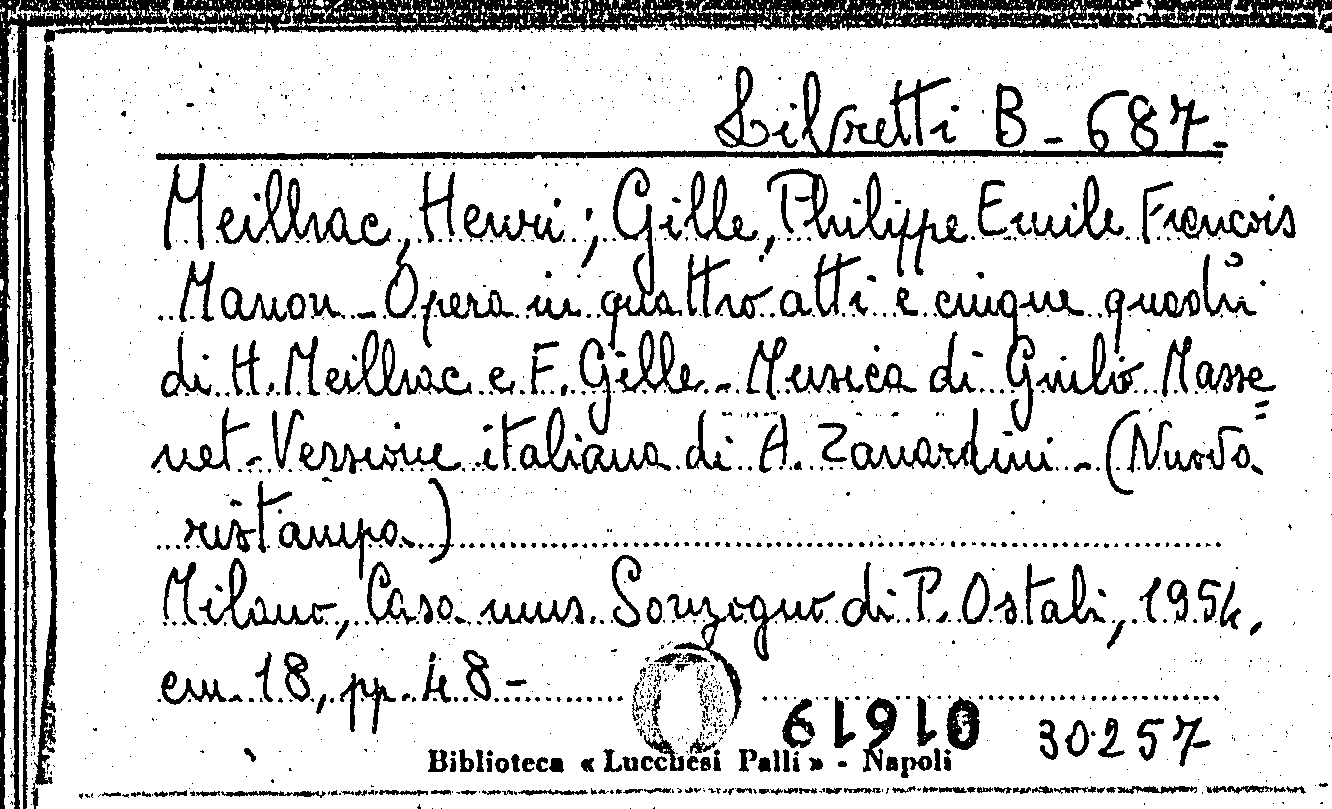 Libretti B - 687.
Meilhac, Henri; Gille, Philippe Emile Francois
Manon - Opera in quattro atti e cinque quadri
di H. Meilhac e F. Gille - Musica di Giulio Masse=
net - Versione italiana di A. Zanardini - (Nuova
ristampa)
Milano, Casa mus. Sonzogno di P. Ostali, 1954,
cm. 18, pp. 48 -
30257
Biblioteca « Lucchesi Palli » - Napoli